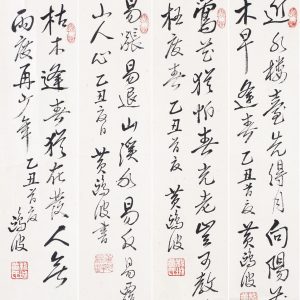 近水樓臺先得月向陽花
木早逢春 乙丑首夏 黃鷗波
鶯花猶怕春光老豈可教
枉度春 乙丑首夏 黃鷗波
易漲易退山溪水易反易覆
小人心 乙丑夏日 黃鷗波書
枯木逢春猶在發人無
兩度再少年 乙丑首夏 鷗波